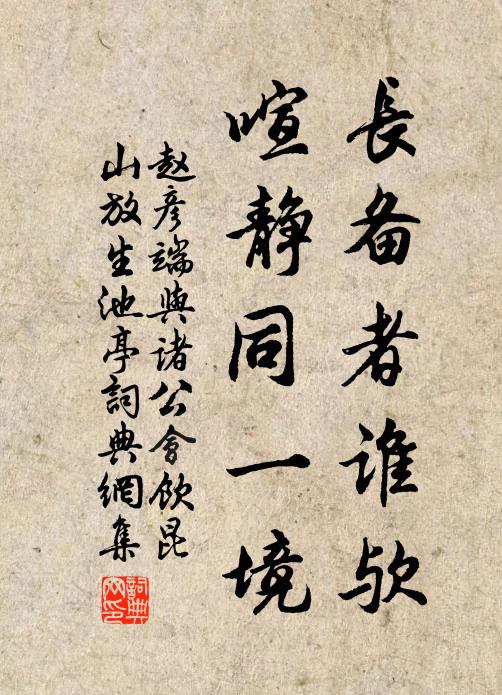 長备者谁欤
喧静同一境
赵彦端與诸公會饮昆
山放生池亭詞典網集
詞典
网印